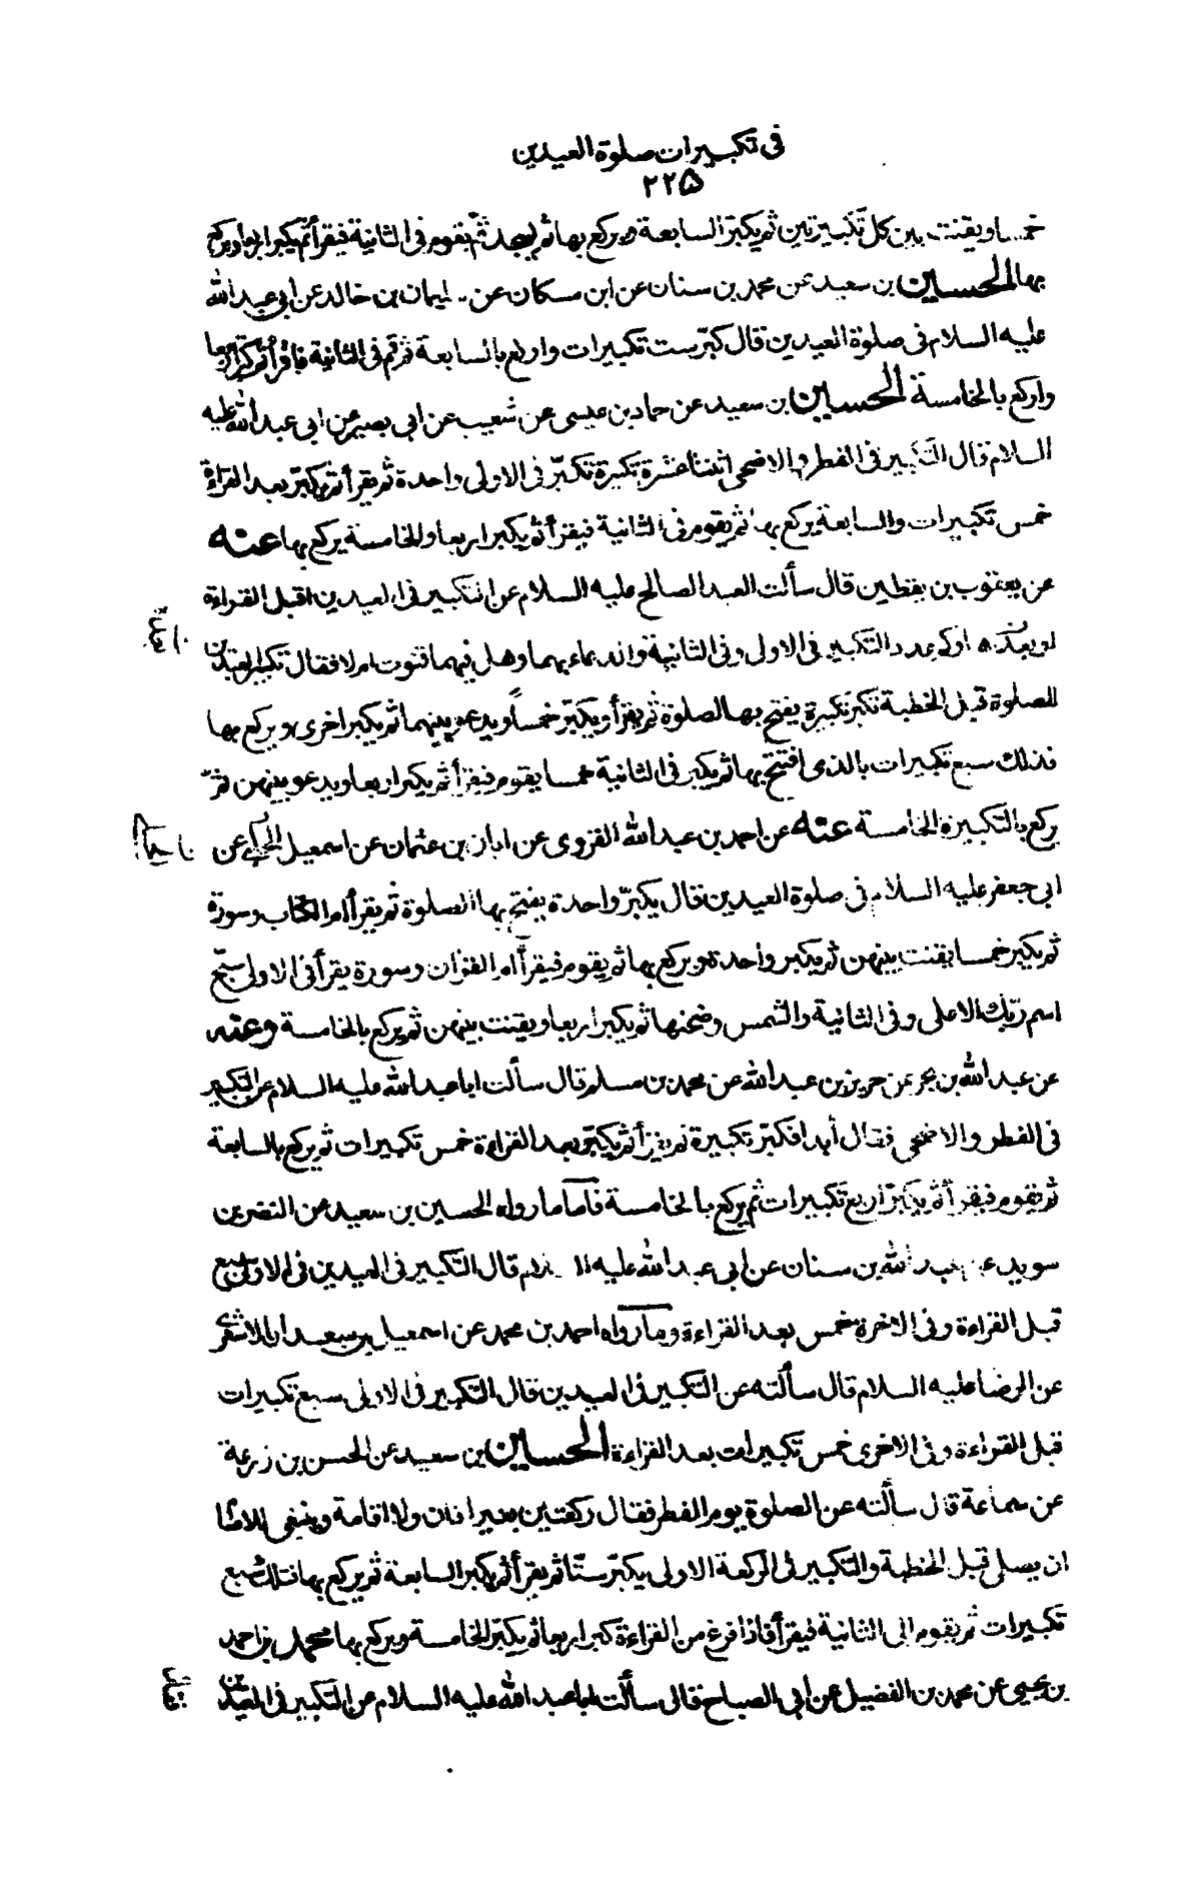 في تكبيرات صلوة العيدين
٢٢٥
خمسا ويقنت بين كل تكبيرتين ثم يكبر السابعة ويركع بها ثم يسجد ثم يقوم في الثانية فيقرأ ثم يكبر اربعا ويركع
بها الحسين بن سعيد عن محمد بن سنان عن ابن مسكان عن سليمان بن خالد عن ابي عبد الله
عليه السلام في صلوة العيدين قال كبر ست تكبيرات واركع بالسابعة ثم قم في الثانية فاقرأ ثم كبر اربعا
واركع بالخامسة الحسين بن سعيد عن حماد بن عيسى عن شعيب عن ابي بصير عن ابي عبد الله عليه
السلام قال التكبير في الفطر والاضحى اثنتا عشرة تكبيرة تكبر في الاولى واحدة ثم يقرأ ثم يكبر بعد القراءة
خمس تكبيرات والسابعة يركع بها ثم يقوم في الثانية فيقرأ ثم يكبر اربعا والخامسة يركع بها عنه
عن يعقوب بن يقطين قال سألت العبد الصالح عليه السلام عن التكبير في العيدين اقبل القراءة
او بعدها وكم عدد التكبير في الاولى وفي الثانية والدعاء بينهما وهل فيهما قنوت ام لا فقال تكبير العيدين
للصلوة قبل الخطبة تكبر تكبيرة يفتتح بها الصلوة ثم يقرأ ويكبر خمسا ويدعو بينهما ثم يكبر اخرى ويركع بها
فذلك سبع تكبيرات بالذى افتتح بها ثم يكبر في الثانية خمسا يقوم فيقرأ ثم يكبر اربعا ويدعو بينهن ثم
يركع بالتكبيرة الخامسة عنه عن احمد بن عبد الله القروى عن ابان بن عثمان عن اسمعيل الجبلي عن
ابي جعفر عليه السلام في صلوة العيدين قال يكبر واحدة يفتتح بها الصلوة ثم يقرأ ام الكتاب وسورة
ثم يكبر خمسا يقنت بينهن ثم يكبر واحدة ويركع بها ثم يقوم فيقرأ ام القرآن وسورة يقرأ في الاولى سبح
اسم ربك الاعلى وفي الثانية والشمس وضحيها ثم يكبر اربعا ويقنت بينهن ثم يركع بالخامسة وعنه
عن عبد الله بن بحر عن حريز بن عبد الله عن محمد بن مسلم قال سألت ابا عبد الله عليه السلام عن التكبير
في الفطر والاضحى فقال أبدا فكبر تكبيرة ثم يقرأ ثم يكبر بعد القراءة خمس تكبيرات ثم يركع بالسابعة
ثم يقوم فيقرأ ثم يكبر اربع تكبيرات ثم يركع بالخامسة فأما ما رواه الحسين بن سعيد عن النضر بن
سويد عن عبد الله بن سنان عن ابي عبد الله عليه السلام قال التكبير في العيدين في الاولى سبع
قبل القراءة وفي الاخرة خمس بعد القراءة وما رواه احمد بن محمد عن اسمعيل بن سعد الاشعرى
عن الرضا عليه السلام قال سألته عن التكبير في العيدين قال التكبير في الاولى سبع تكبيرات
قبل القراءة وفي الاخرى خمس تكبيرات بعد القراءة الحسين بن سعيد عن الحسن بن زرعة
عن سماعة قال سألته عن الصلوة يوم الفطر فقال ركعتين بغير اذان ولا اقامة وينبغي للامام
ان يصلى قبل الخطبة والتكبير في الركعة الاولى يكبر ستا ثم يقرأ ثم يكبر السابعة ثم يركع بها فتلك سبع
تكبيرات ثم يقوم الى الثانية فيقرأ فاذا فرغ من القراءة كبر اربعا ثم يكبر الخامسة ويركع بها محمد بن احمد
بن يحيى عن محمد بن الفضيل عن ابي الصباح قال سألت ابا عبد الله عليه السلام عن التكبير في العيدين